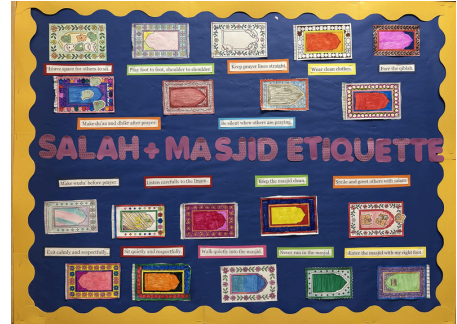 Leave space for others to sit.
Pray foot to foot, shoulder to shoulder.
Keep prayer lines straight.
Wear clean clothes.
Face the qiblah.
Make du'aa and dhikr after prayer.
Be silent when others are praying.
SALAH + MASJID ETIQUETTE
Make wudu' before prayer.
Listen carefully to the Imam.
Keep the masjid clean.
Smile and greet others with salam.
Exit calmly and respectfully.
Sit quietly and respectfully.
Walk quietly into the masjid.
Never run in the masjid.
Enter the masjid with my right foot.